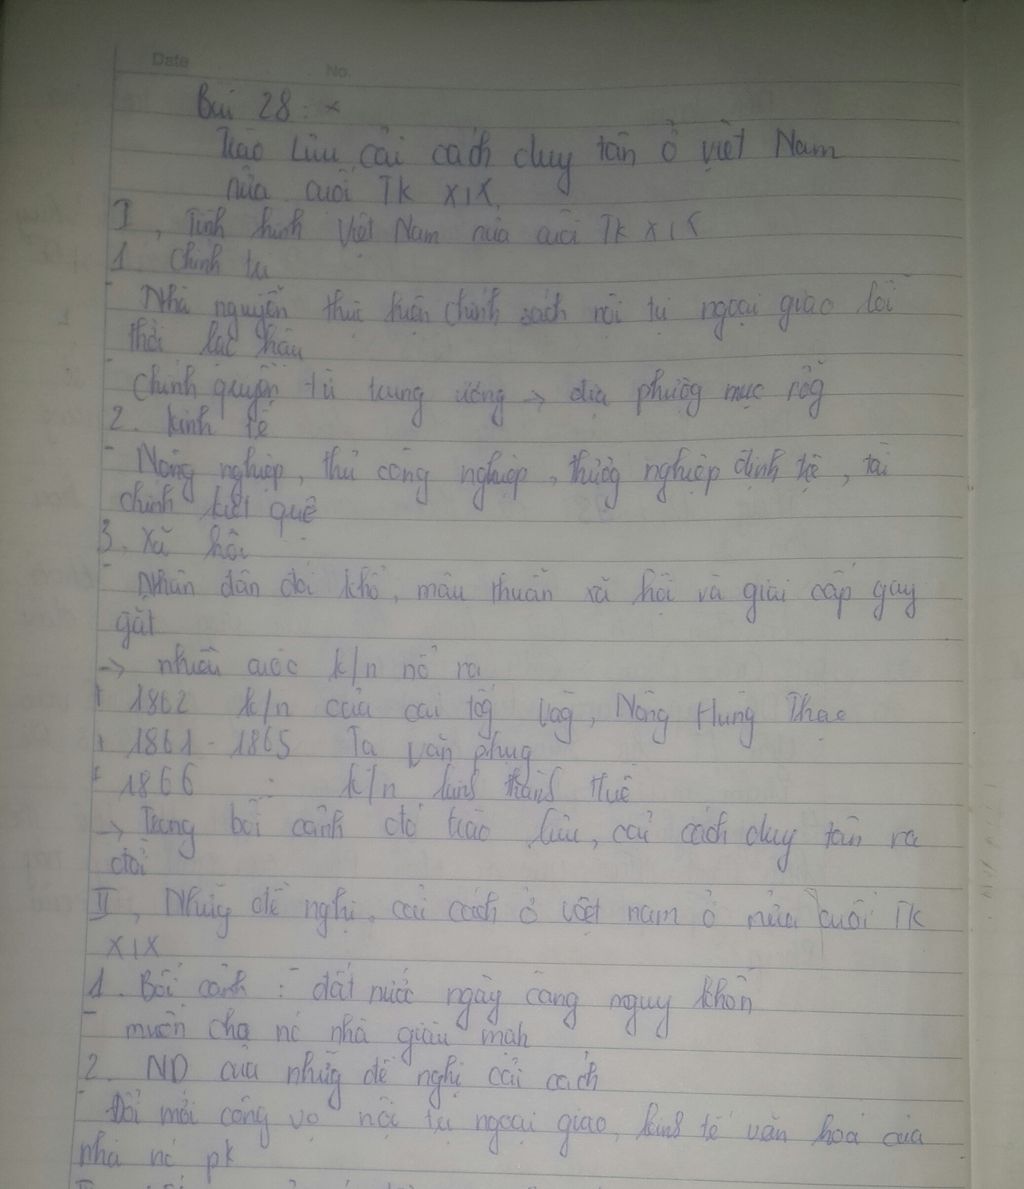 Date No.
Bài 28:
Trào lưu cải cách duy tân ở việt Nam
nửa cuối Tk XIX.
I, Tình hình Việt Nam nửa cuối Tk XIX
1. Chính trị
- Nhà nguyễn thực hiện chính sách nội trị ngoại giao lỗi
thời lạc hậu
Chính quyền từ trung ương → địa phường mục rỗg
2. kinh tế
- Nông nghiệp, thủ công nghiệp, thươg nghiệp đình trệ, tài
chính kiệt quệ
3. Xã hội
- Nhân dân đói khổ, mâu thuẫn xã hội và giai cấp gay
gắt
→ nhiều cuộc k/n nổ ra
+ 1862 k/n của cai tổg Vàg, Nông Hùng Thạc
+ 1861 - 1865 Tạ văn phụg
+ 1866 : k/n kinh thành Huế
→ Trong bối cảnh đó trào lưu, cải cách duy tân ra
đời
II, Nhữg đề nghị, cải cách ở việt nam ở nửa cuối Tk
XIX
1. Bối cảnh : đất nước ngày càng nguy khốn
- muốn cho nc nhà giàu mạh
2. ND của nhữg đề nghị cải cách
- Đổi mới công vc nội trị ngoại giao, kinh tế văn hoá của
nhà nc pk